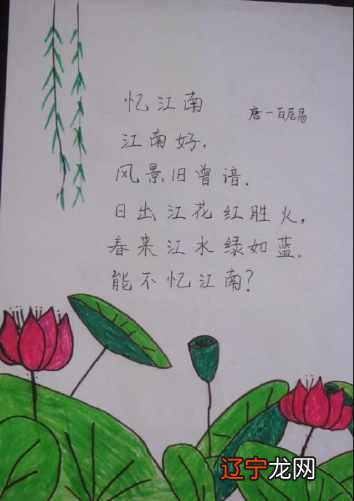 忆江南
唐一百居易
江南好,
风景旧曾谙.
日出江花红胜火,
春来江水绿如蓝.
能不忆江南?
辽宁龙网